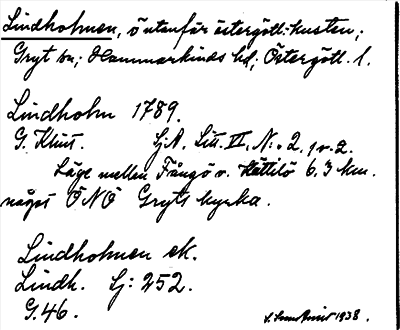 Lindholmen, ö utanför östergötl. kusten;
Gryt sn; Hammarkinds hd; Östergötl. l.
Lindholm 1789.
G. Klint. SjA. Litt. VI, N:o 2.
Läge mellan Fångö o. Kättilö 6.3 km.
något ÖNÖ Gryts kyrka.
Lindholmen ek.
Lindh. Sj: 252.
G. 46.
1938.